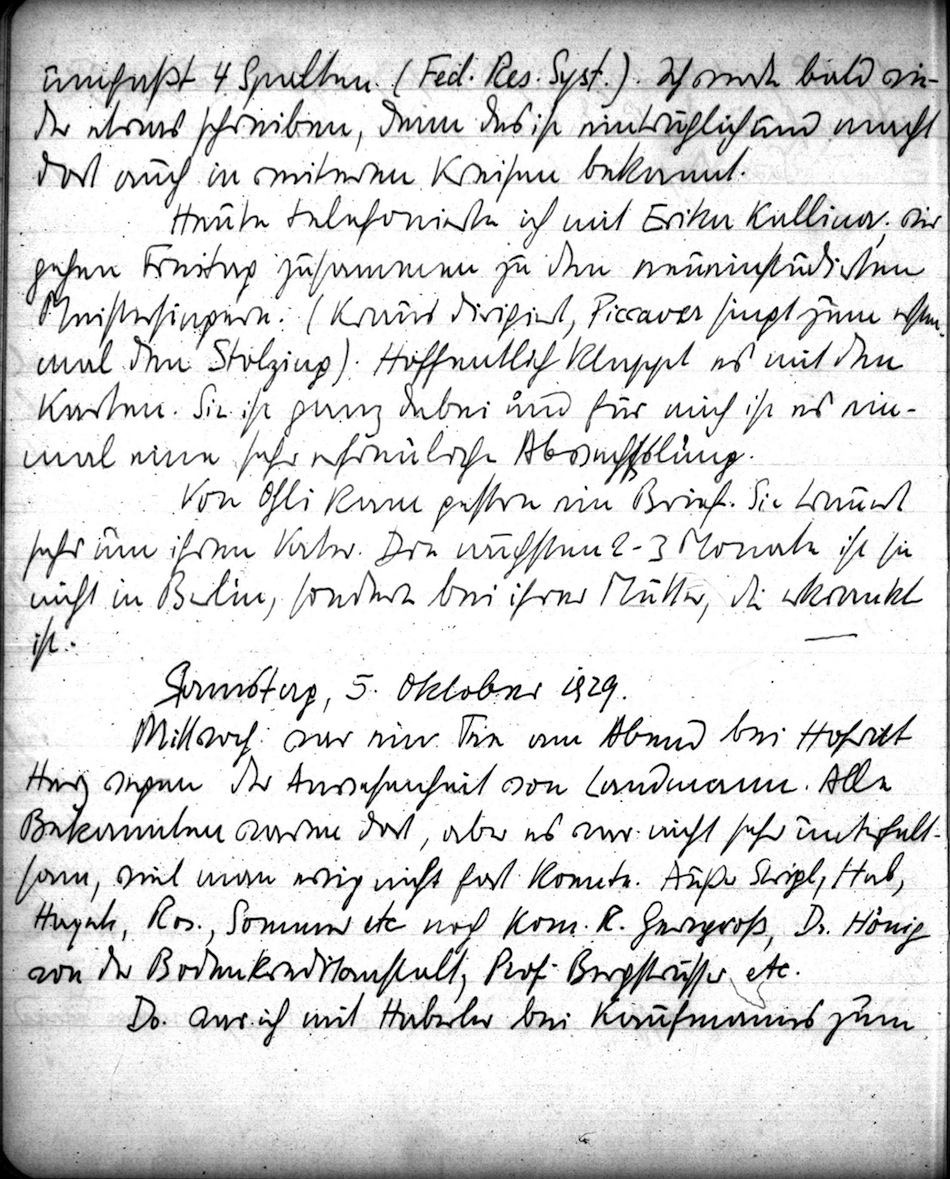 umfaßt 4 Spalten. (Fed. Res. Syst.). Ich werde bald wie-
der etwas schreiben, denn das ist einträglich und macht
dort auch in weiteren Kreisen bekannt.
Heute telefonierte ich mit Erika Kallina; wir
gehen Freitag zusammen zu den neueinstudierten
Meistersingern. (Krauss dirigiert, Piccaver singt zum ersten-
mal den Stolzing). Hoffentlich klappt es mit den
Karten. Sie ist ganz dabei und für mich ist es ein-
mal eine sehr erfreuliche Abwechslung.
Von Ghli kam gestern ein Brief. Sie trauert
sehr um ihren Vater. Die nächsten 2-3 Monate ist sie
nicht in Berlin, sondern bei ihrer Mutter, die erkrankt
ist. —
Samstag, 5. Oktober 1929.
Mittwoch war ein Tee am Abend bei Hofrat
wegen der Anwesenheit von Landmann. Alle
Bekannten waren dort, aber es war nicht sehr unterhalt-
sam, weil man ewig nicht fort konnte. Außer Hab,
Hayek, Ros., Sommer etc noch Kom. R. Gerngroß, Dr. Hönig
von der Bodenkreditanstalt, Prof. Bergsträsser etc.
Do. war ich mit Haberler bei Kaufmanns zum